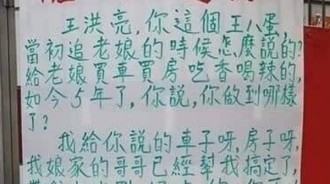 王洪亮，你這個王八蛋
當初追老娘的時候怎麼說的？
給老娘買車買房吃香喝辣的，
如今5年了，你說，你做到哪樣
了？
我給你說的車子呀，房子呀，
我娘家的哥哥已經幫我搞定了，